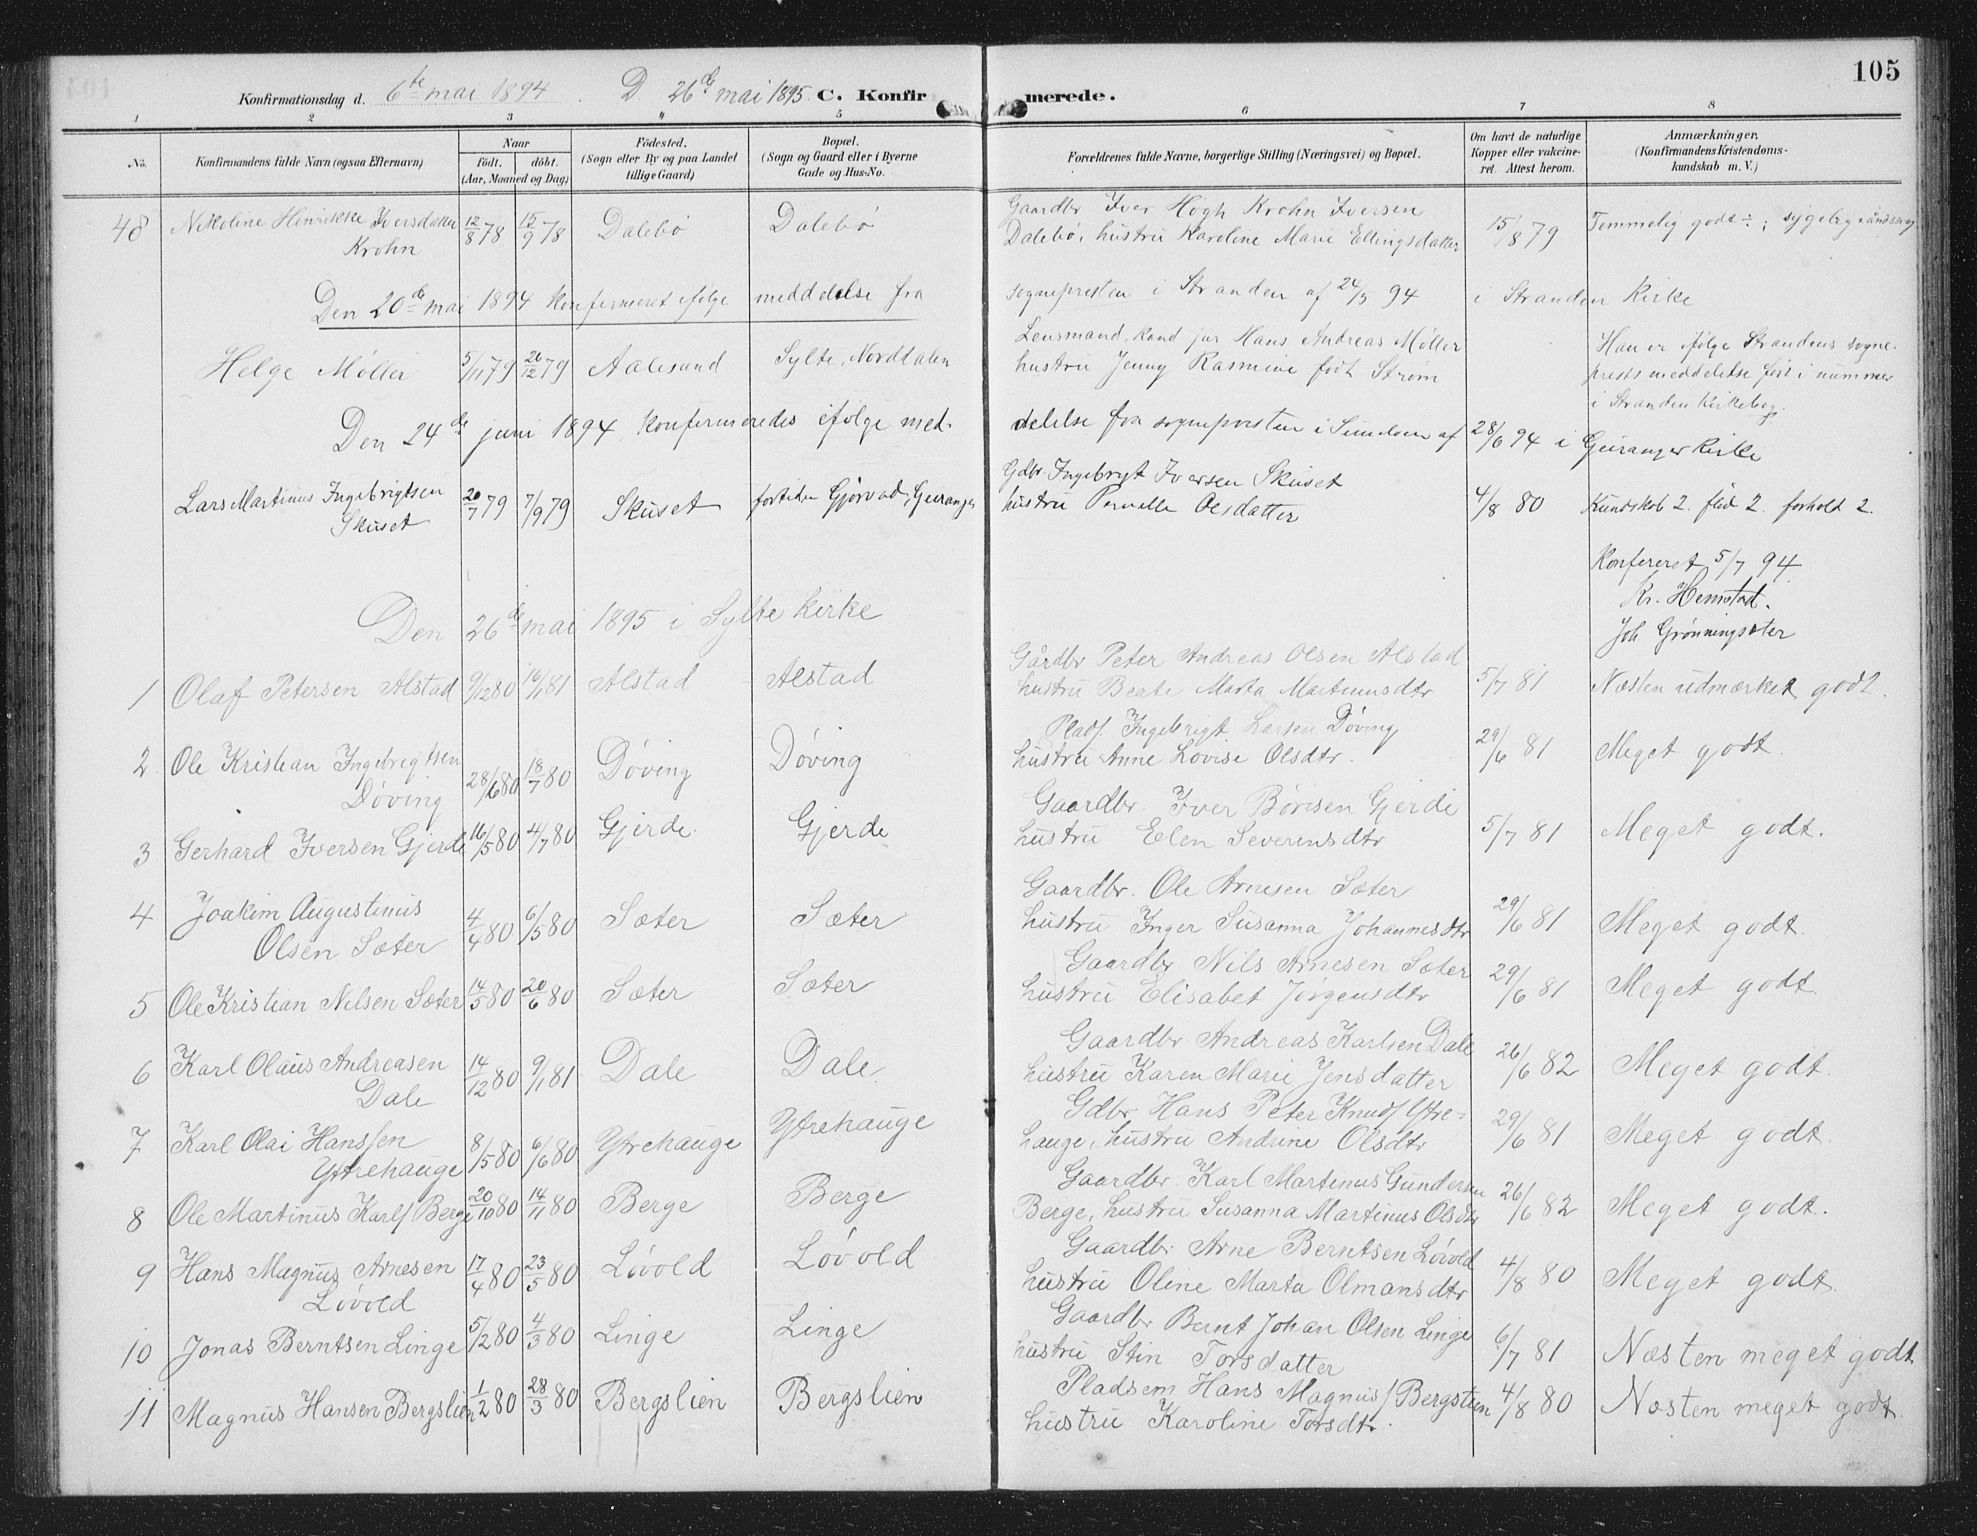 105
Konfirmationsdag d. 6te mai 1894. D. 26de mai 1895 C. Konfirmerede.
1 2 3 4 5 6 7 8
No. Konfirmandens fulde Navn (ogsaa Efternavn) Naar født. døbt. (Aar, Maaned og Dag) Fødested. (Sogn eller By og paa Landet tillige Gaard) Bopæl. (Sogn og Gaard eller i Byerne Gade og Hus-No. Forældrenes fulde Navne, borgerlige Stilling (Næringsvei) og Bopæl. Om havt de naturlige Kopper eller vakcineret. Attest herom. Anmærkninger. (Konfirmandens Kristendomskundskab m. V.)
48 Nikoline Hinrikke Iversdatter 12/8 78 15/9 78 Dalebø Dalebø Gaardbr Iver Høgh Krohn Iversen 15/8 79 Temmelig godt ÷; sygelig
Krohn Dalebø, hustru Karoline Marie Ellingsdatter
Den 20de mai 1894 konfirmeret ifølge meddelelse fra sognepresten i Stranden af 24/5 94 i Stranden Kirke
Helge Møller 5/11 79 26/12 79 Aalesund Sylte, Norddalen Lensmand, kand jur Hans Andreas Møller Han er ifølge Strandens sogne-
hustru Jenny Rasmine født Strøm prests meddelelse ført i nummer
i Stranden Kirkebog.
Den 24de juni 1894 konfirmeredes ifølge meddelelse fra sognepresten i Sunelven af 28/6 94 i Geiranger Kirke
Lars Martinus Ingebrigtsen 20/7 79 7/9 79 Skuset fortiden Gjørvad, Geiranger Gdbr. Ingebrygt Iversen Skuset 4/8 80 Kundskab 2. flid 2. forhold 2.
Skuset hustru Pernelle Olsdatter
Konfereret 5/7 94.
Kr. Hemstad.
Joh Grønningsæter
Den 26de mai 1895 i Sylte kirke
1 Olaf Petersen Alstad 9/12 80 16/1 81 Alstad Alstad Gårdbr Peter Andreas Olsen Alstad 5/7 81 Næsten udmærket godt.
hustru Beate Marta Martinusdtr
2 Ole Kristian Ingebrigtsen 28/6 80 18/7 80 Døving Døving Plads. Ingebrigt Larsen Døving 29/6 81 Meget godt.
Døving hustru Anne Lovise Olsdtr.
3 Gerhard Iversen Gjerde 16/5 80 4/7 80 Gjerde Gjerde Gaardbr. Iver Børisen Gjerde 5/7 81 Meget godt.
hustru Elen Severinsdtr
4 Joakim Augustinus 4/4 80 6/5 80 Sæter Sæter Gaardbr. Ole Arnesen Sæter 29/6 81 Meget godt.
Olsen Sæter hustru Inger Susanna Johannesdtr
5 Ole Kristian Nilsen Sæter 14/5 80 20/6 80 Sæter Sæter Gaardbr Nils Arnesen Sæter 29/6 81 Meget godt.
hustru Elisabet Jørgensdtr
6 Karl Olaus Andreasen 14/12 80 9/1 81 Dale Dale Gaardbr Andreas Karlsen Dale 26/6 82 Meget godt.
Dale hustru Karen Marie Jensdatter
7 Karl Olai Hanssen 8/5 80 6/6 80 Ytrehauge Ytrehauge Gdbr. Hans Peter Knuds Ytre= 29/6 81 Meget godt.
Ytrehauge hauge, hustru Andrine Olsdtr
8 Ole Martinus Karls Berge 20/10 80 14/11 80 Berge Berge Gaardbr. Karl Martinus Gundersen 26/6 82 Meget godt.
Berge, hustru Susanna Martinus Olsdtr
9 Hans Magnus Arnesen 17/4 80 23/5 80 Løvold Løvold Gaardbr. Arne Berntsen Løvold 4/8 80 Meget godt.
Løvold hustru Oline Marta Olmansdtr
10 Jonas Berntsen Linge 5/2 80 4/3 80 Linge Linge Gaardbr Bernt Johan Olsen Linge 6/7 81 Næsten meget godt
hustru Stin Torsdatter
11 Magnus Hansen Bergslien 1/2 80 28/3 80 Bergslien Bergslien Pladsem. Hans Magnus/Bergslien 4/8 80 Næsten meget godt.
hustru Karoline Torsdtr.